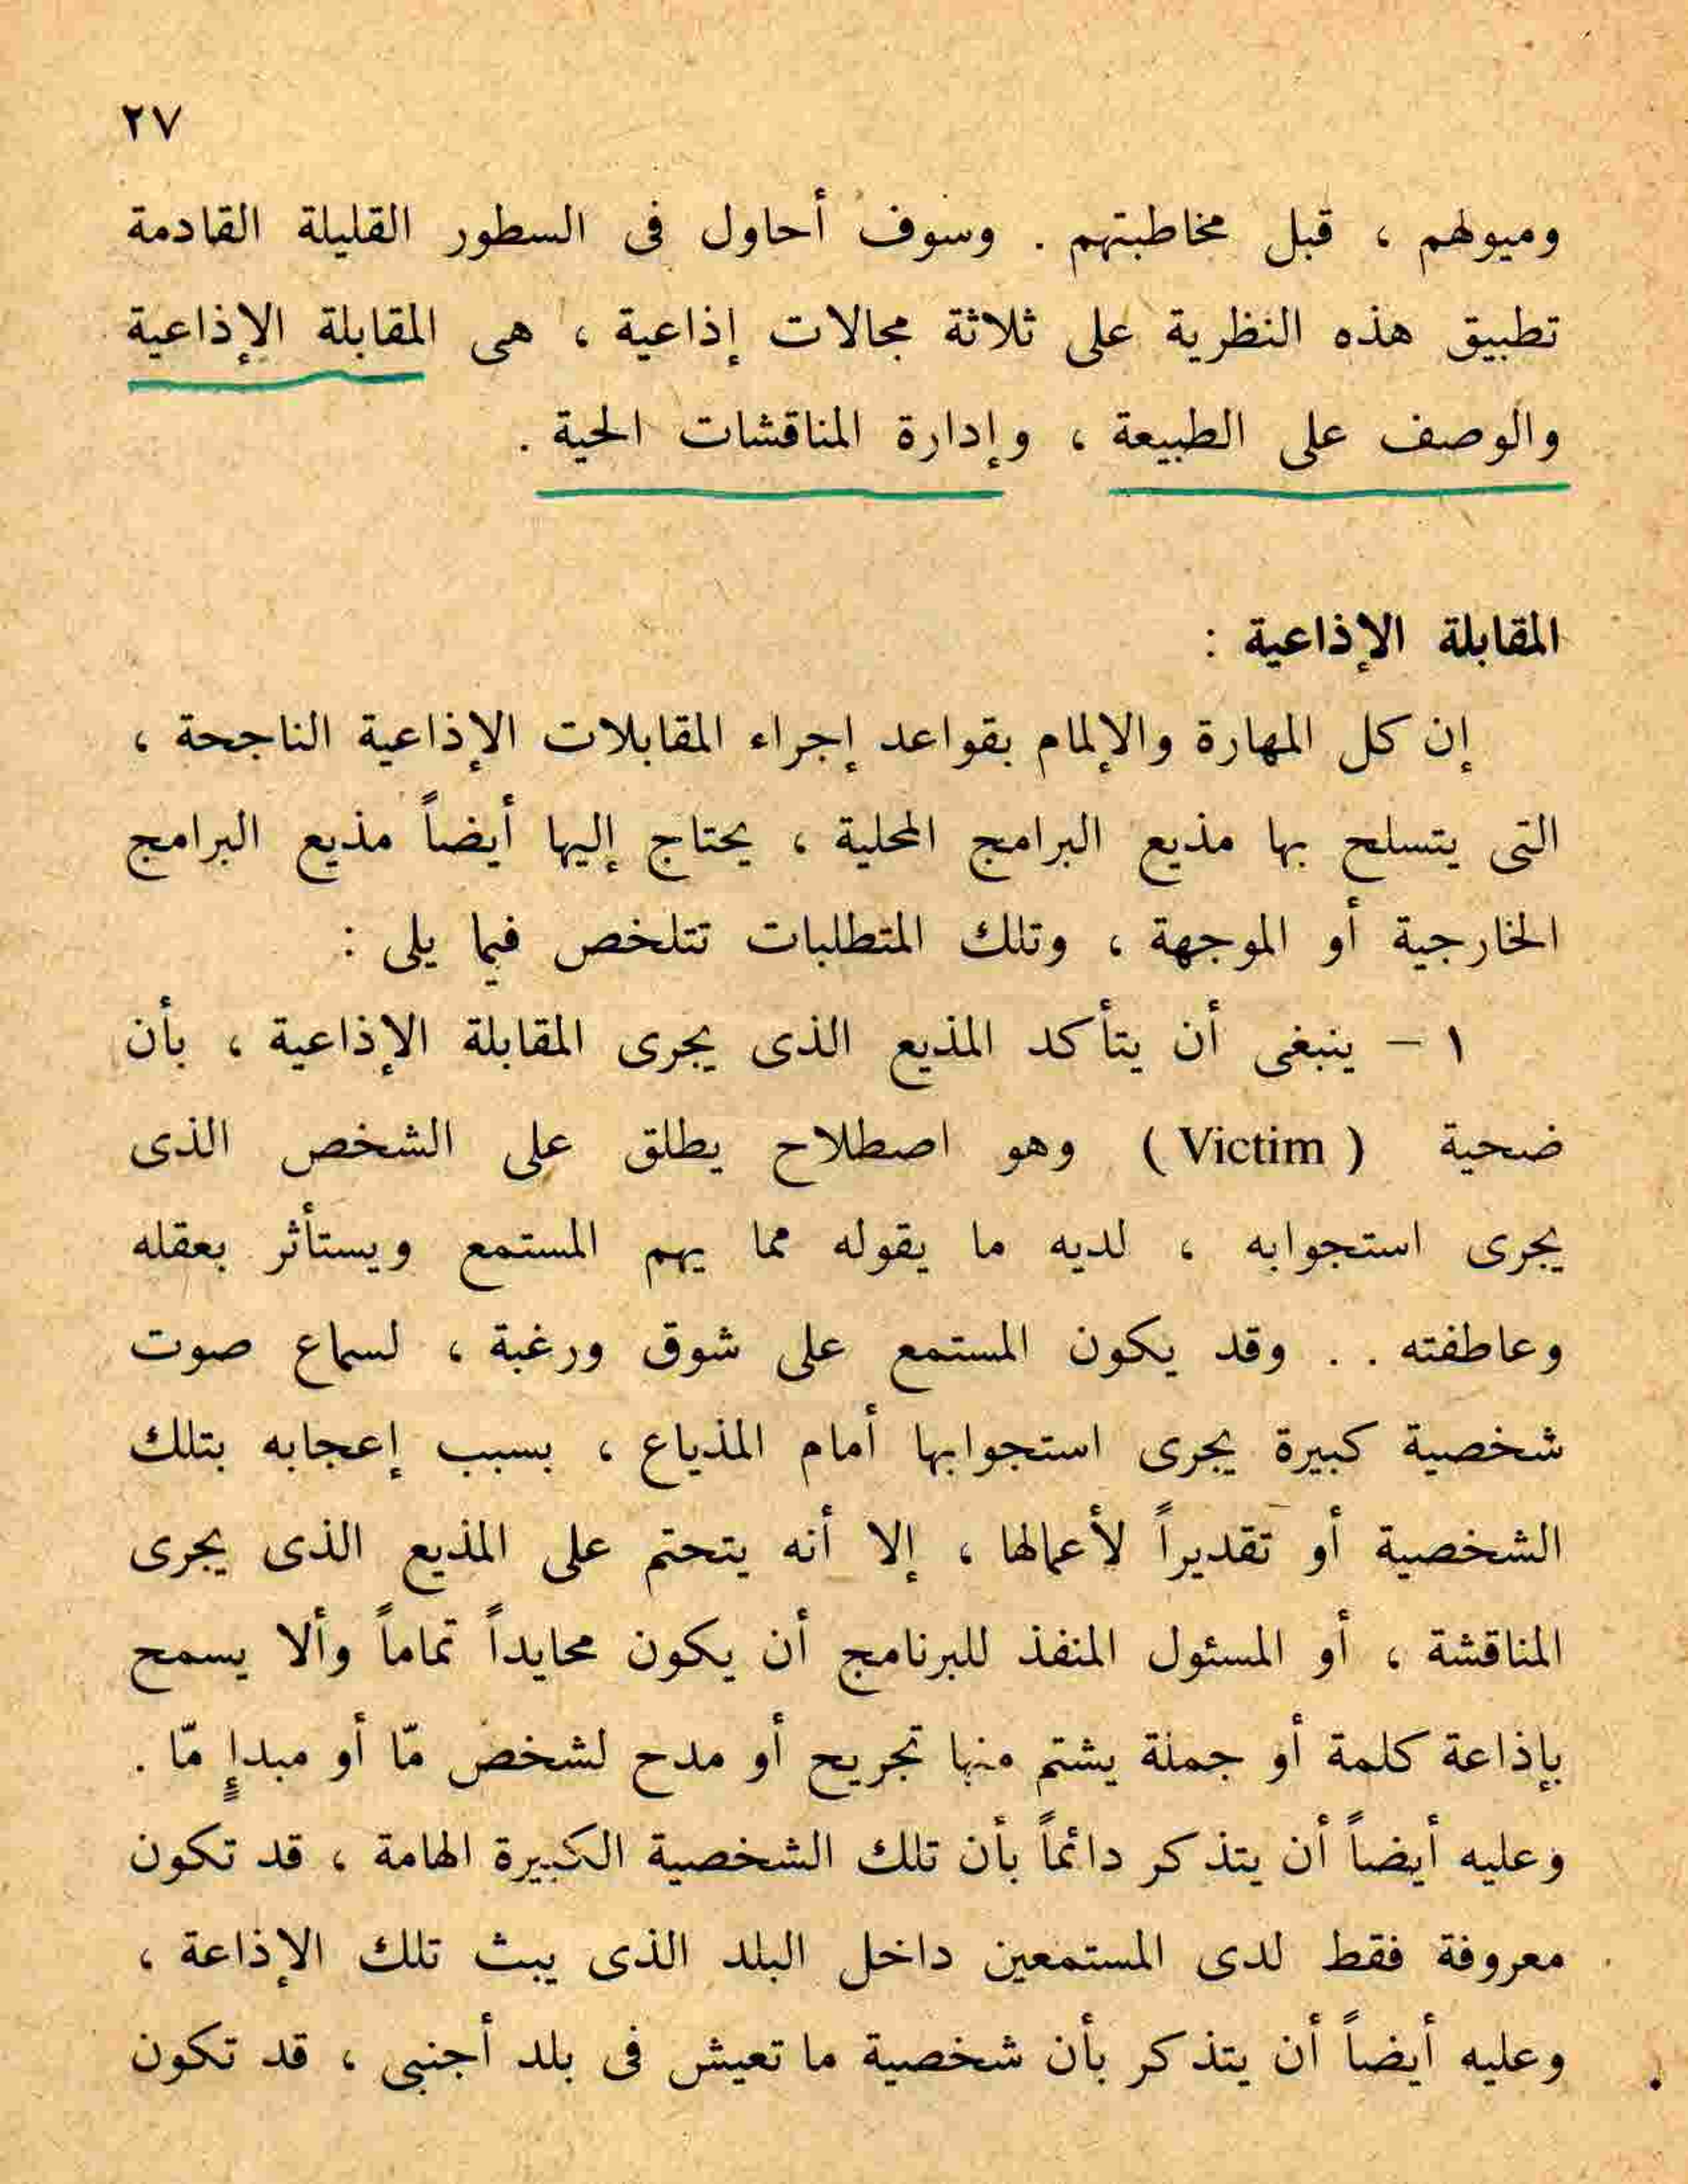 ٢٧
وميولهم ، قبل مخاطبتهم . وسوف أحاول فى السطور القليلة القادمة
تطبيق هذه النظرية على ثلاثة مجالات إذاعية ، هى المقابلة الإذاعية
والوصف على الطبيعة ، وإدارة المناقشات الحية .
المقابلة الإذاعية :
إن كل المهارة والإلمام بقواعد إجراء المقابلات الإذاعية الناجحة ،
التى يتسلح بها مذيع البرامج المحلية ، يحتاج إليها أيضاً مذيع البرامج
الخارجية أو الموجهة ، وتلك المتطلبات تتلخص فيما يلى :
١ – ينبغى أن يتأكد المذيع الذى يجرى المقابلة الإذاعية ، بأن
ضحية ( Victim ) وهو اصطلاح يطلق على الشخص الذى
يجرى استجوابه ، لديه ما يقوله مما يهم المستمع ويستأثر بعقله
وعاطفته . . وقد يكون المستمع على شوق ورغبة ، لسماع صوت
شخصية كبيرة يجرى استجوابها أمام المذياع ، بسبب إعجابه بتلك
الشخصية أو تقديراً لأعمالها ، إلا أنه يتحتم على المذيع الذى يجرى
المناقشة ، أو المسئول المنفذ للبرنامج أن يكون محايداً تماماً وألا يسمح
بإذاعة كلمة أو جملة يشتم منها تجريح أو مدح لشخص مّا أو مبدإٍ مّا .
وعليه أيضاً أن يتذكر دائماً بأن تلك الشخصية الكبيرة الهامة ، قد تكون
معروفة فقط لدى المستمعين داخل البلد الذى يبث تلك الإذاعة ،
وعليه أيضاً أن يتذكر بأن شخصية ما تعيش فى بلد أجنبى ، قد تكون